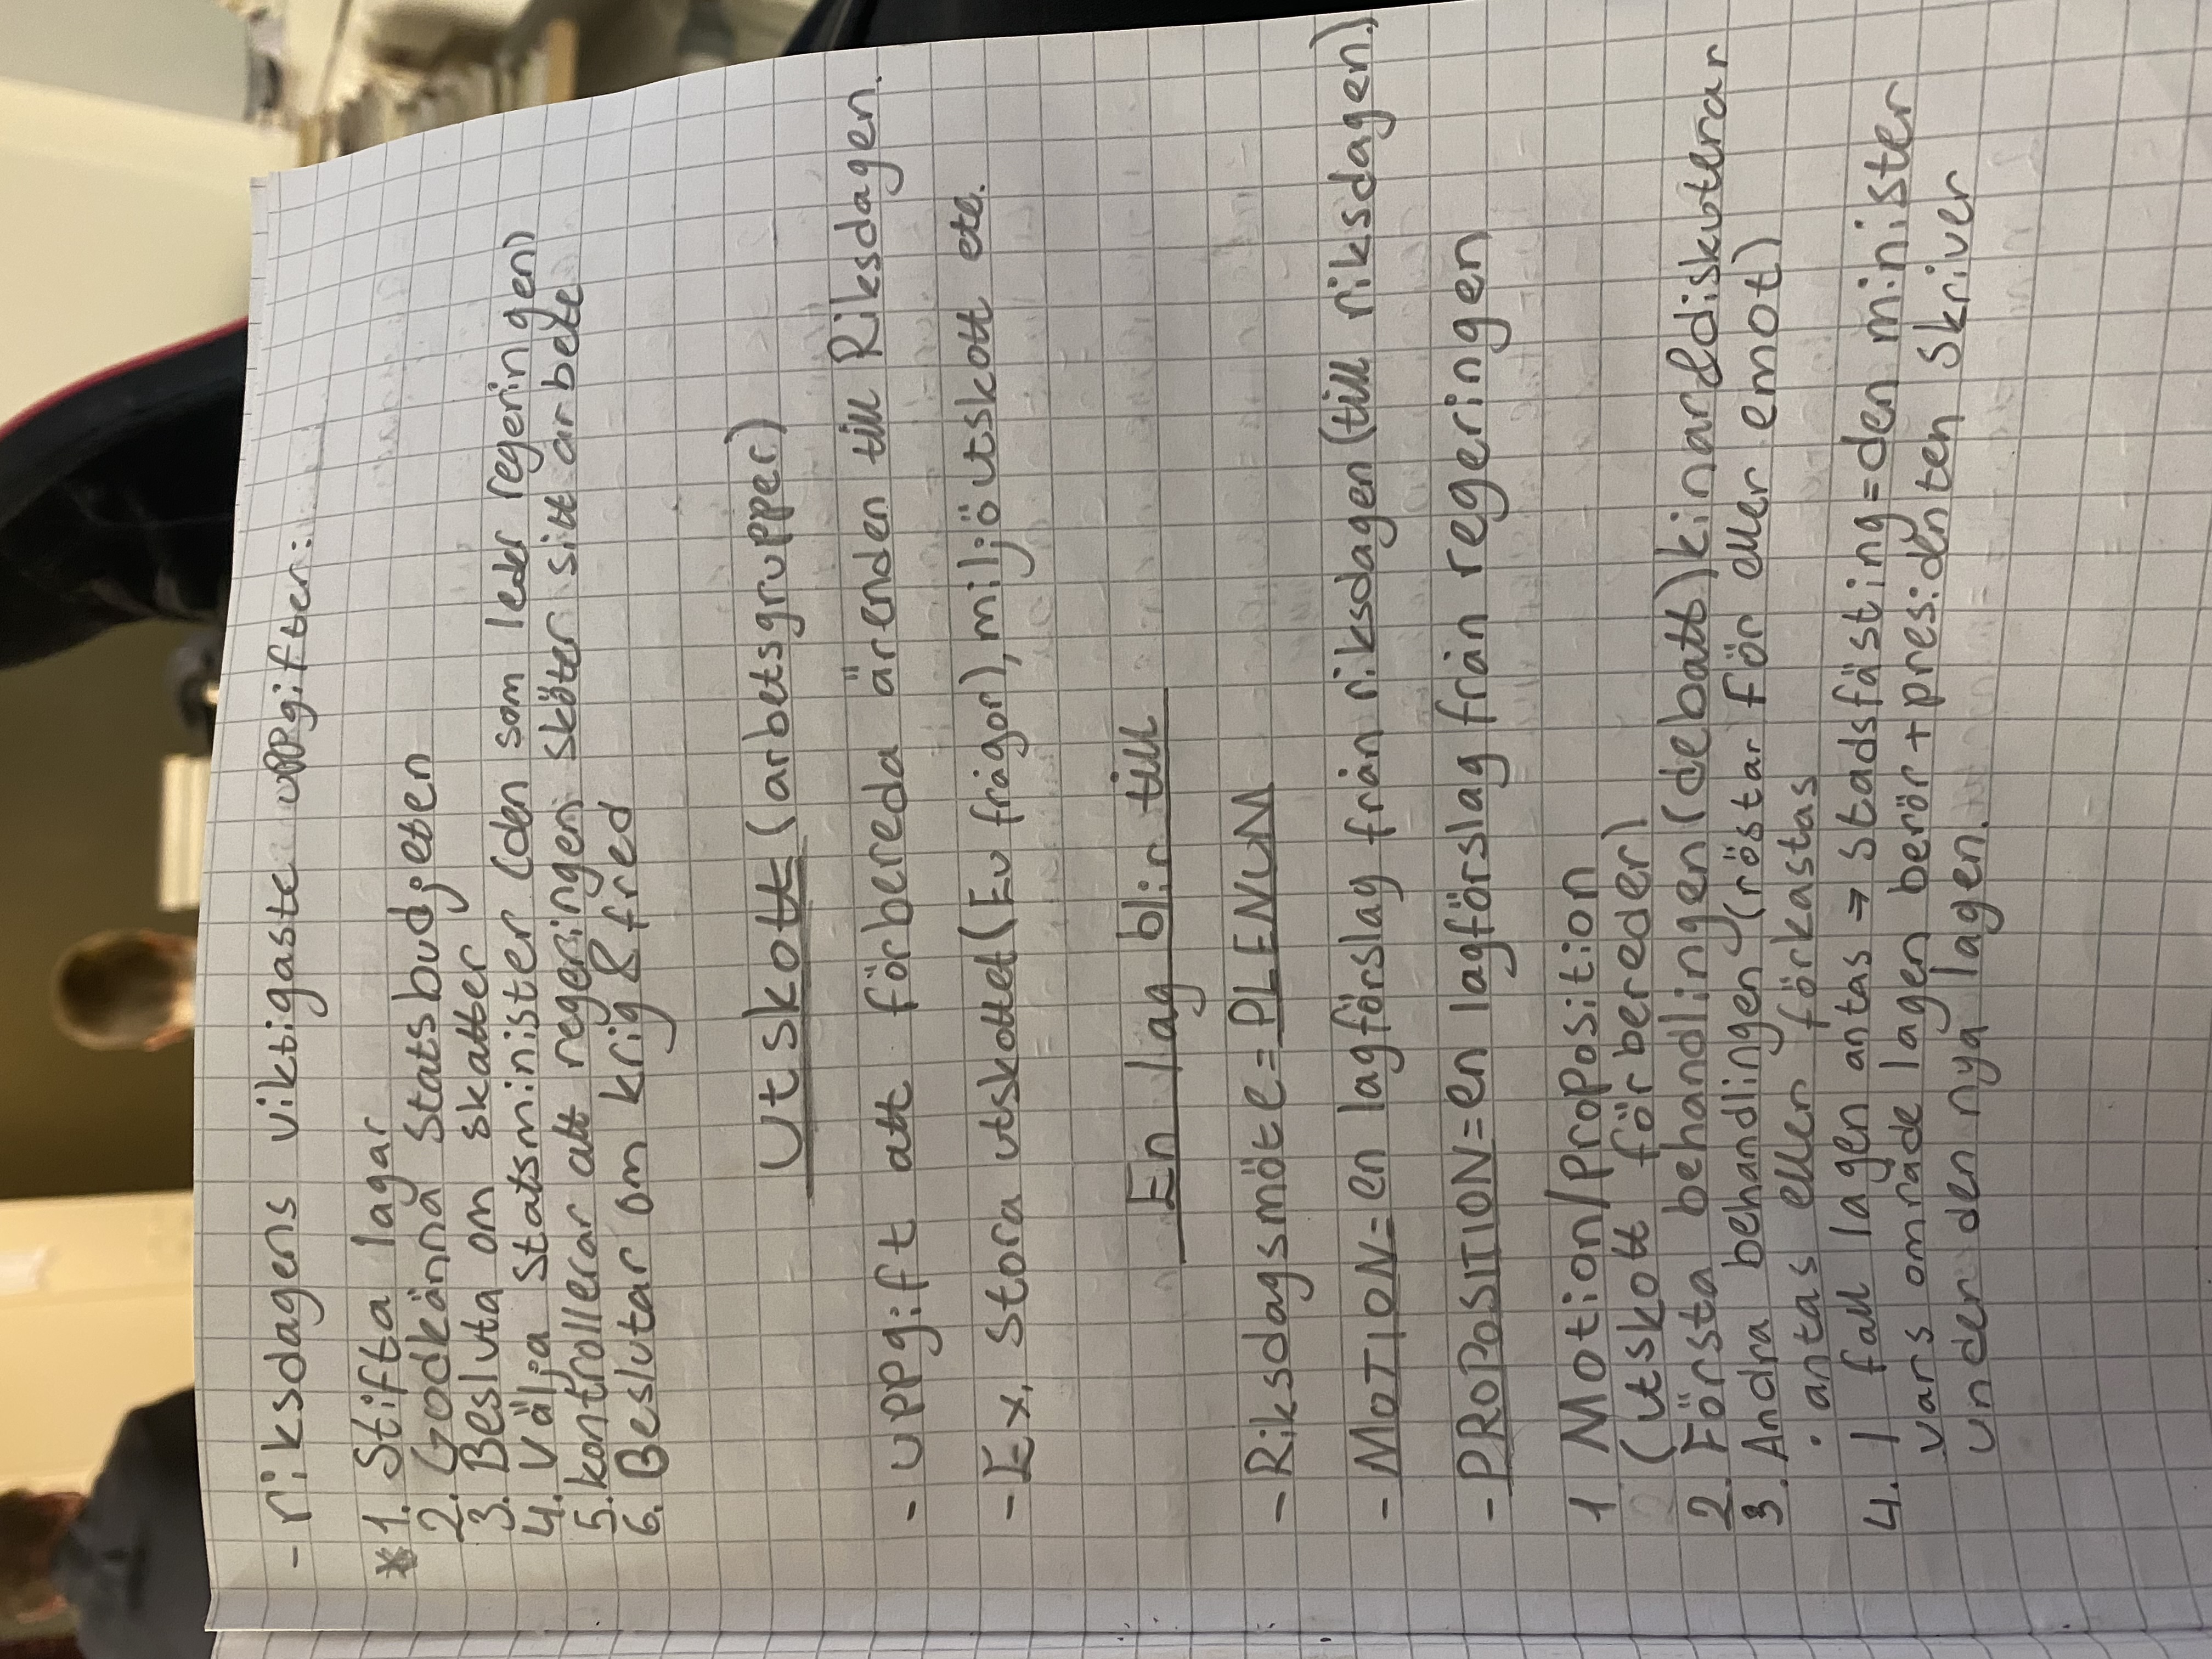 - riksdagens viktigaste uppgifter:
*1. Stifta lagar
2. Godkänna statsbudgeten
3. Besluta om skatter
4. Välja statsminister (den som leder regeringen)
5. kontrollerar att regeringen sköter sitt arbete
6. Beslutar om krig & fred
Utskott (arbetsgrupper)
- uppgift att förbereda ärenden till Riksdagen.
- Ex, Stora utskottet (Eu frågor), miljöutskott etc.
En lag blir till
- Riksdagsmöte = PLENUM
- MOTION = en lagförslag från riksdagen (till riksdagen.)
- PROPOSITION = en lagförslag från regeringen
1 Motion/proposition
(utskott förbereder)
2. Första behandlingen (debatt) & diskuterar
3. Andra behandlingen (röstar för eller emot)
• antas eller förkastas
4. I fall lagen antas → stadsfästing = den minister
vars område lagen berör + presidenten skriver
under den nya lagen.